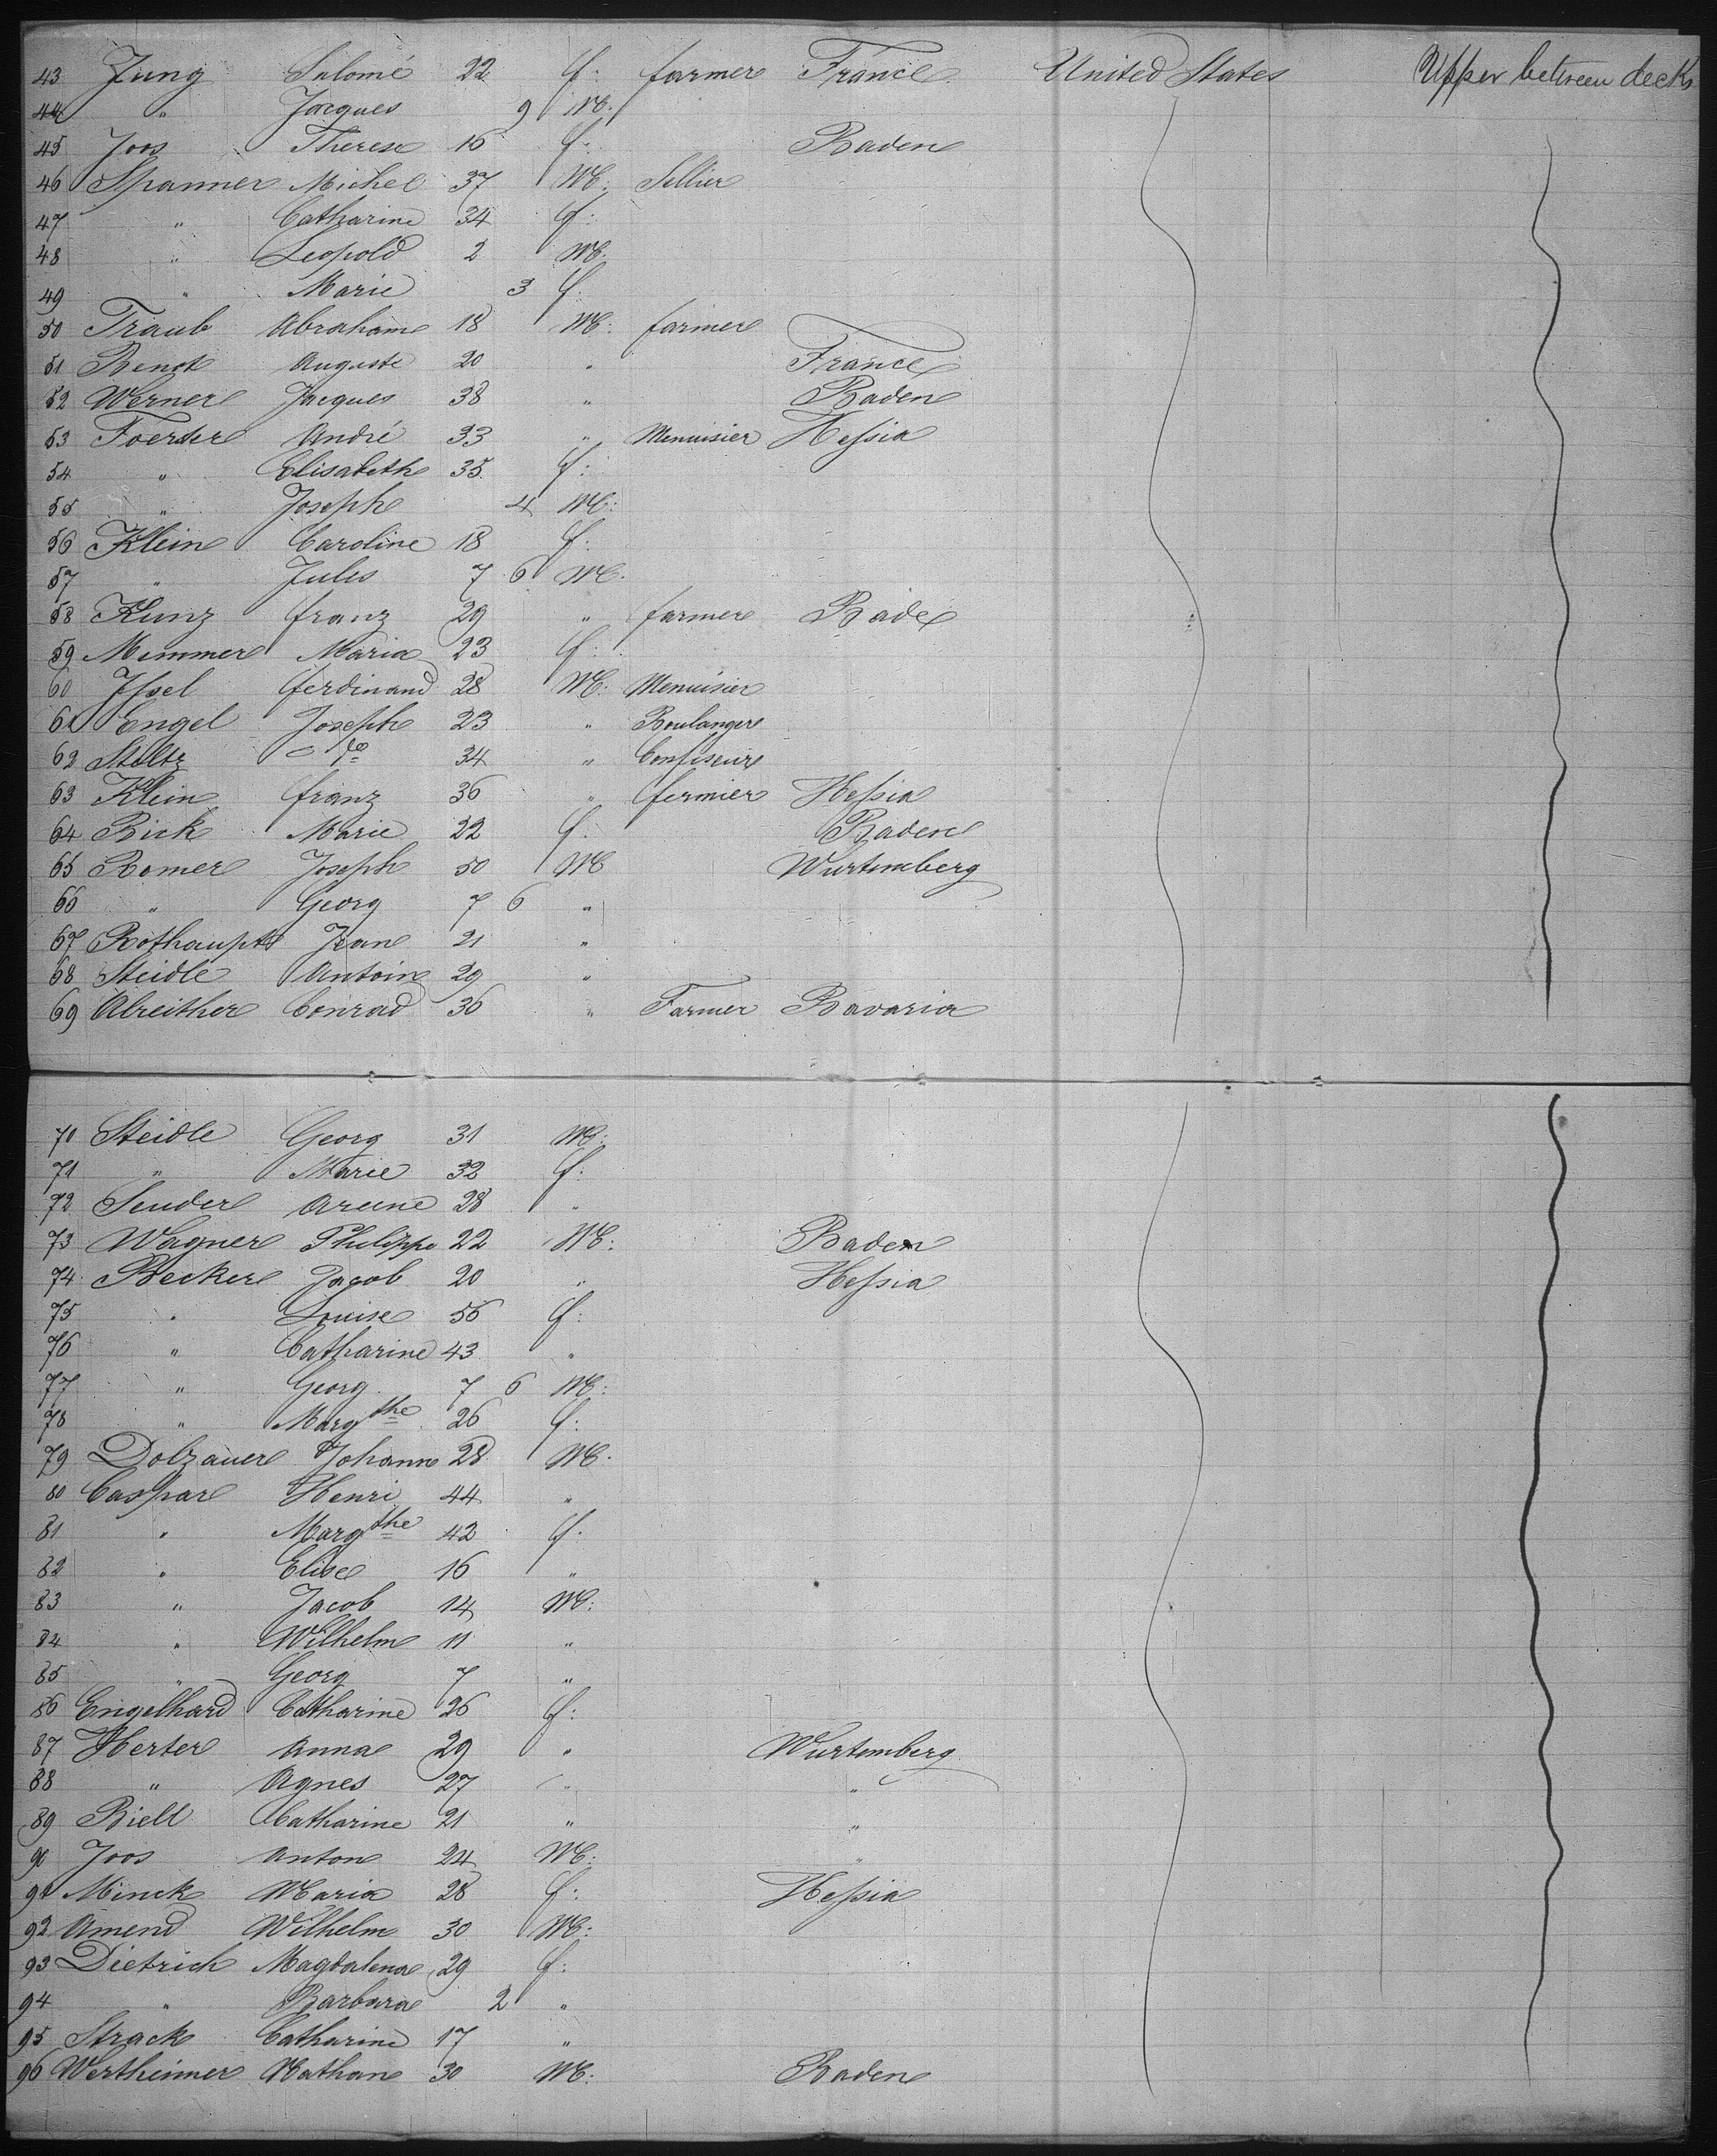 43 Jung Salomé 22 f: farmer France United States Upper between decks
44 " Jacques 9 M:
45 Joos Therese 16 f: Baden
46 Spanner Michel 37 M: Sellier
47 " Catharine 34 f:
48 " Leopold 2 M:
49 " Marie 3 f:
50 Traub Abraham 18 M: farmer
51 Benck Auguste 20 " France
52 Werner Jacques 38 " Baden
53 Foerster André 33 " Menuisier Hessia
54 " Elisabeth 35 f:
55 " Joseph 4 M:
56 Klein Caroline 18 f:
57 " Jules 7 6 M:
58 Kunz franz 29 " farmer Bade
59 Memmer Maria 23 f:
60 Issel ferdinand 28 M: Menuisier
61 Engel Joseph 23 " Boulanger
62 Stoltz do 34 " Confiseur
63 Klein franz 36 " fermier Hessia
64 Bick Marie 22 f: Baden
65 Romer Joseph 50 M Wurtemberg
66 " Georg 7 6 "
67 Rothaupt Jean 21 "
68 Steidle Antoine 29 "
69 Abreither Conrad 36 " Farmer Bavaria
70 Steidle Georg 31 M:
71 " Marie 32 f:
72 Seuder 28 "
73 Wagner Philippe 22 M: Baden
74 Becker Jacob 20 " Hessia
75 " Louise 56 f:
76 " Catharine 43 "
77 " Georg 7 6 M:
78 " Margthe 26 f:
79 Dolzauer Johann 28 M:
80 Caspar Henri 44 "
81 " Margthe 42 f:
82 " Elise 16 "
83 " Jacob 14 M:
84 " Wilhelm 11 "
85 " Georg 7 "
86 Engelhard Catharine 26 f:
87 Herter Anna 29 " Wurtemberg
88 " Agnes 27 " "
89 Biell Catharine 21 " "
90 Joos Anton 24 M: "
91 Minck Maria 28 f: Hessia
92 Amend Wilhelm 30 M:
93 Dietrich Magdalena 29 f:
94 " Barbara 2 "
95 Strack Catharine 17 "
96 Wertheimer Nathan 30 M: Baden